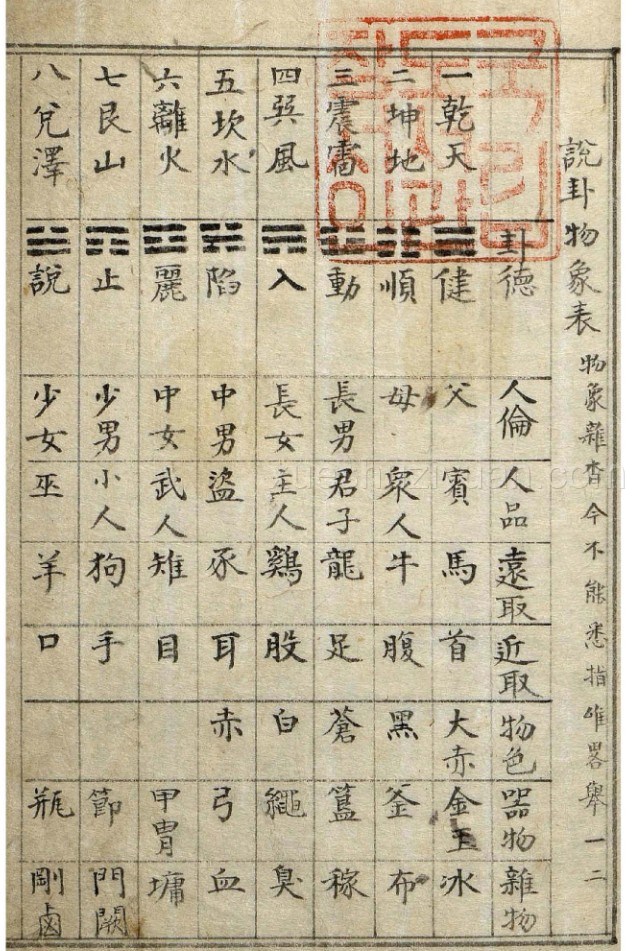 說卦物象表 物象雜沓今不能悉指唯畧舉一二
卦德 人倫 人品 遠取 近取 物色 器物 雜物
一乾天 ☰ 健 父 賓 馬 首 大赤 金玉 冰
二坤地 ☷ 順 母 衆人 牛 腹 黑 釜 布
三震雷 ☳ 動 長男 君子 龍 足 蒼 簋 稼
四巽風 ☴ 入 長女 主人 鷄 股 白 繩 臭
五坎水 ☵ 陷 中男 盜 豕 耳 赤 弓 血
六離火 ☲ 麗 中女 武人 雉 目 甲冑 墉
七艮山 ☶ 止 少男 小人 狗 手 節 門闕
八兌澤 ☱ 說 少女 巫 羊 口 瓶 剛鹵